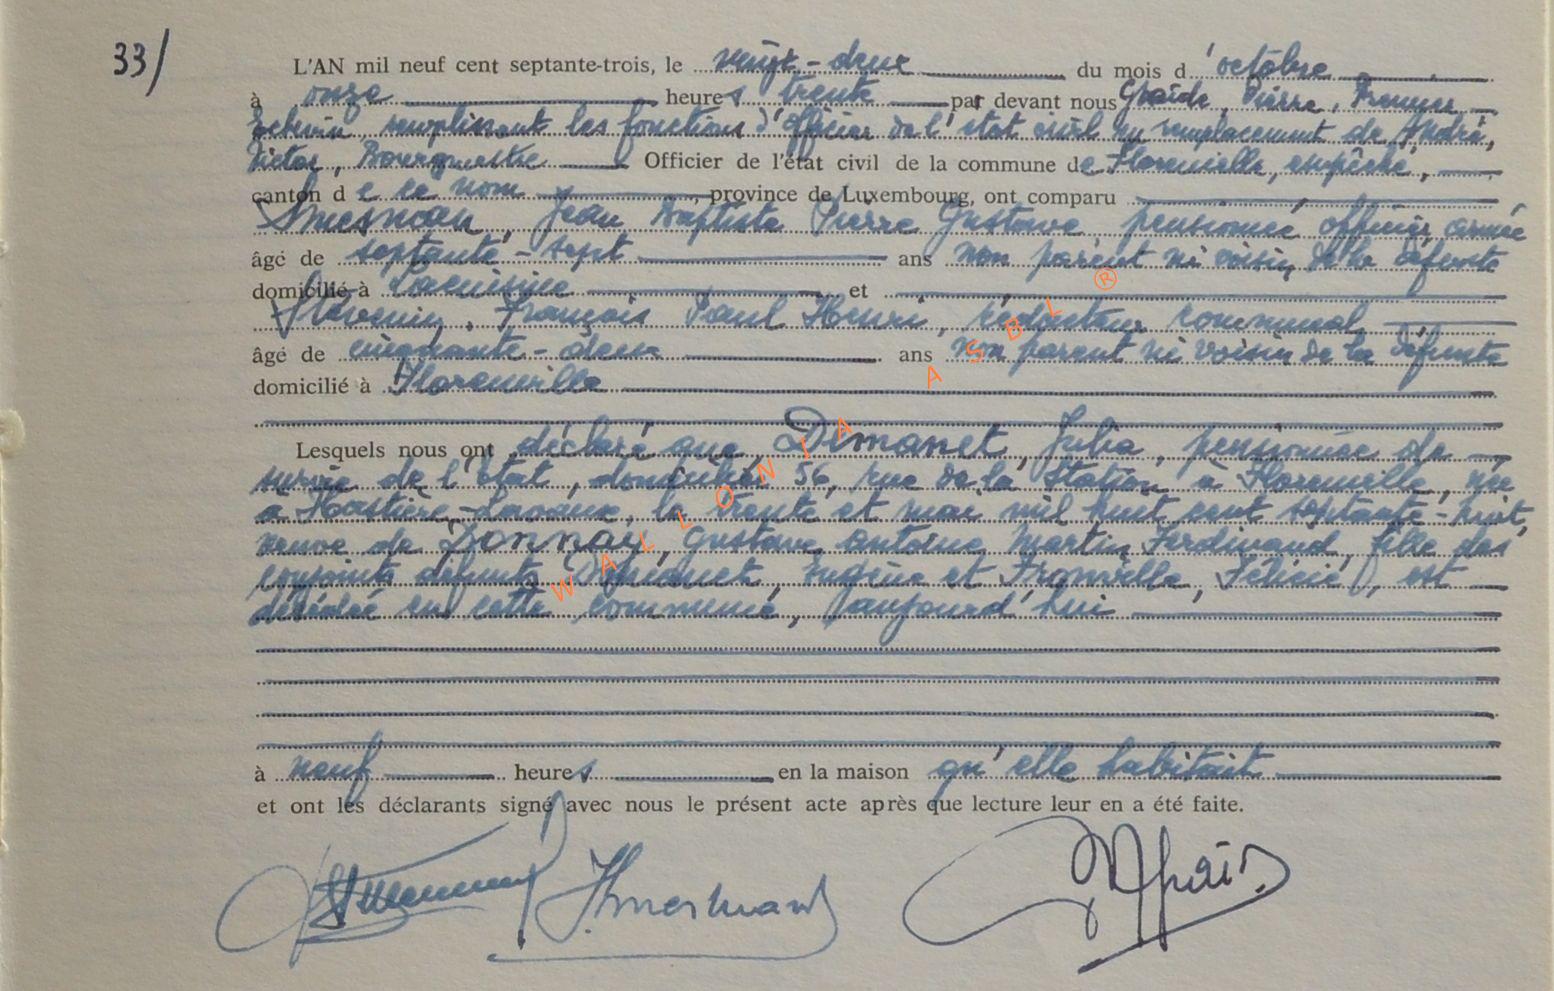 33/
L'AN mil neuf cent septante-trois, le vingt-deux du mois d'octobre
à onze heures trente par devant nous Graide, Pierre, Premier
Echevin remplissant les fonctions d'officier de l'état civil en remplacement de André,
Victor, Bourgmestre Officier de l'état civil de la commune de Florenville, empêché,
canton de ce nom, province de Luxembourg, ont comparu
Jean Baptiste Pierre Gustave, pensionné officier armée
âgé de septante-sept ans non parent ni voisin de la défunte
domicilié à Lacuisine et
François Paul Henri, rédacteur communal
âgé de cinquante-deux ans non parent ni voisin de la défunte
domicilié à Florenville
Lesquels nous ont déclaré que Dimanet, Julia, pensionnée de
survie de l'Etat, domiciliée 56, rue de la Station à Florenville, née
à Hastière-Lavaux, le trente et mai mil huit cent septante-huit,
veuve de Donnay, Gustave Antoine Martin Ferdinand, fille des
conjoints défunts et Fronville, Félicie, est
décédée en cette commune, aujourd'hui
à neuf heures en la maison qu'elle habitait
et ont les déclarants signé avec nous le présent acte après que lecture leur en a été faite.
WALLONIA ASBL ®